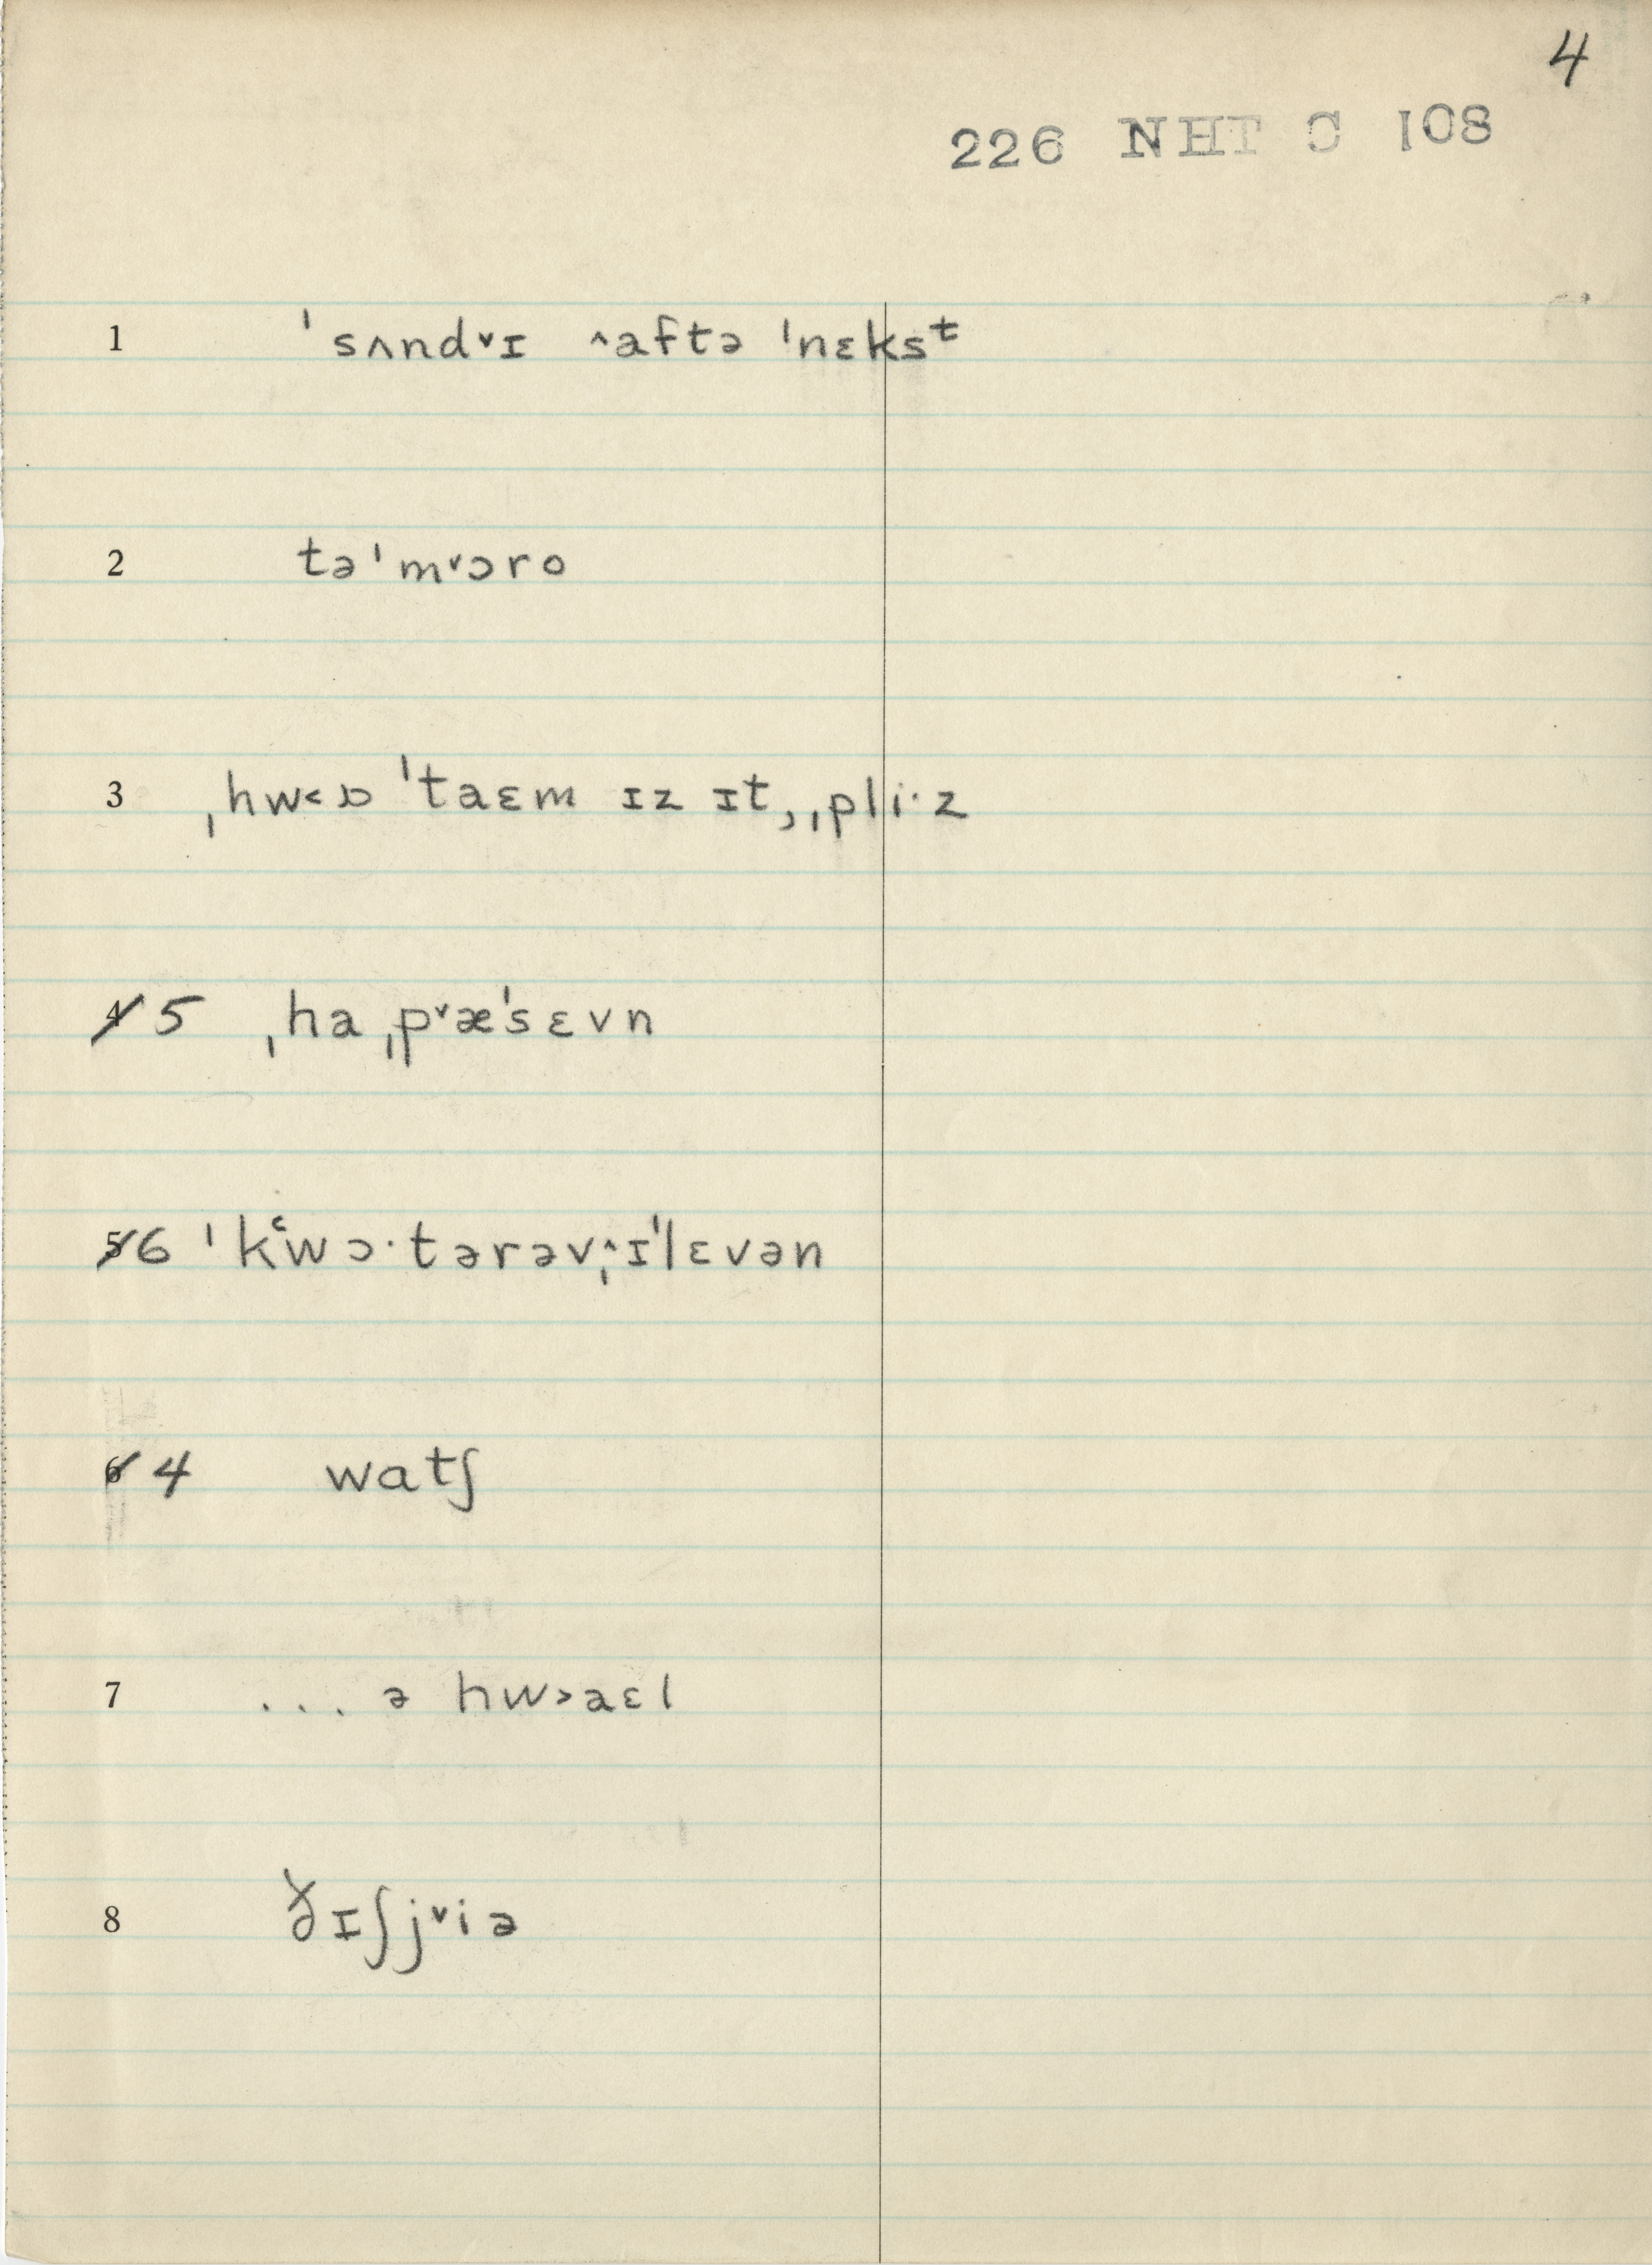 4
226 NHT C 108
1 ˈsʌndᵛɪ ^aftə ˈnɛksᵗ
2 təˈmᵛɔro
3 ˌhw˂ɒ ˈtaɛm ɪz ɪt, ˌpli·z
4 5 ˌha ˌpᵛæˈsɛvn
5 6 ˈkʻwɔ·tərəvˌ^ɪˈlɛvən
6 4 watʃ
7 ... ə hw˃aɛl
8 ðɪʃjᵛiə